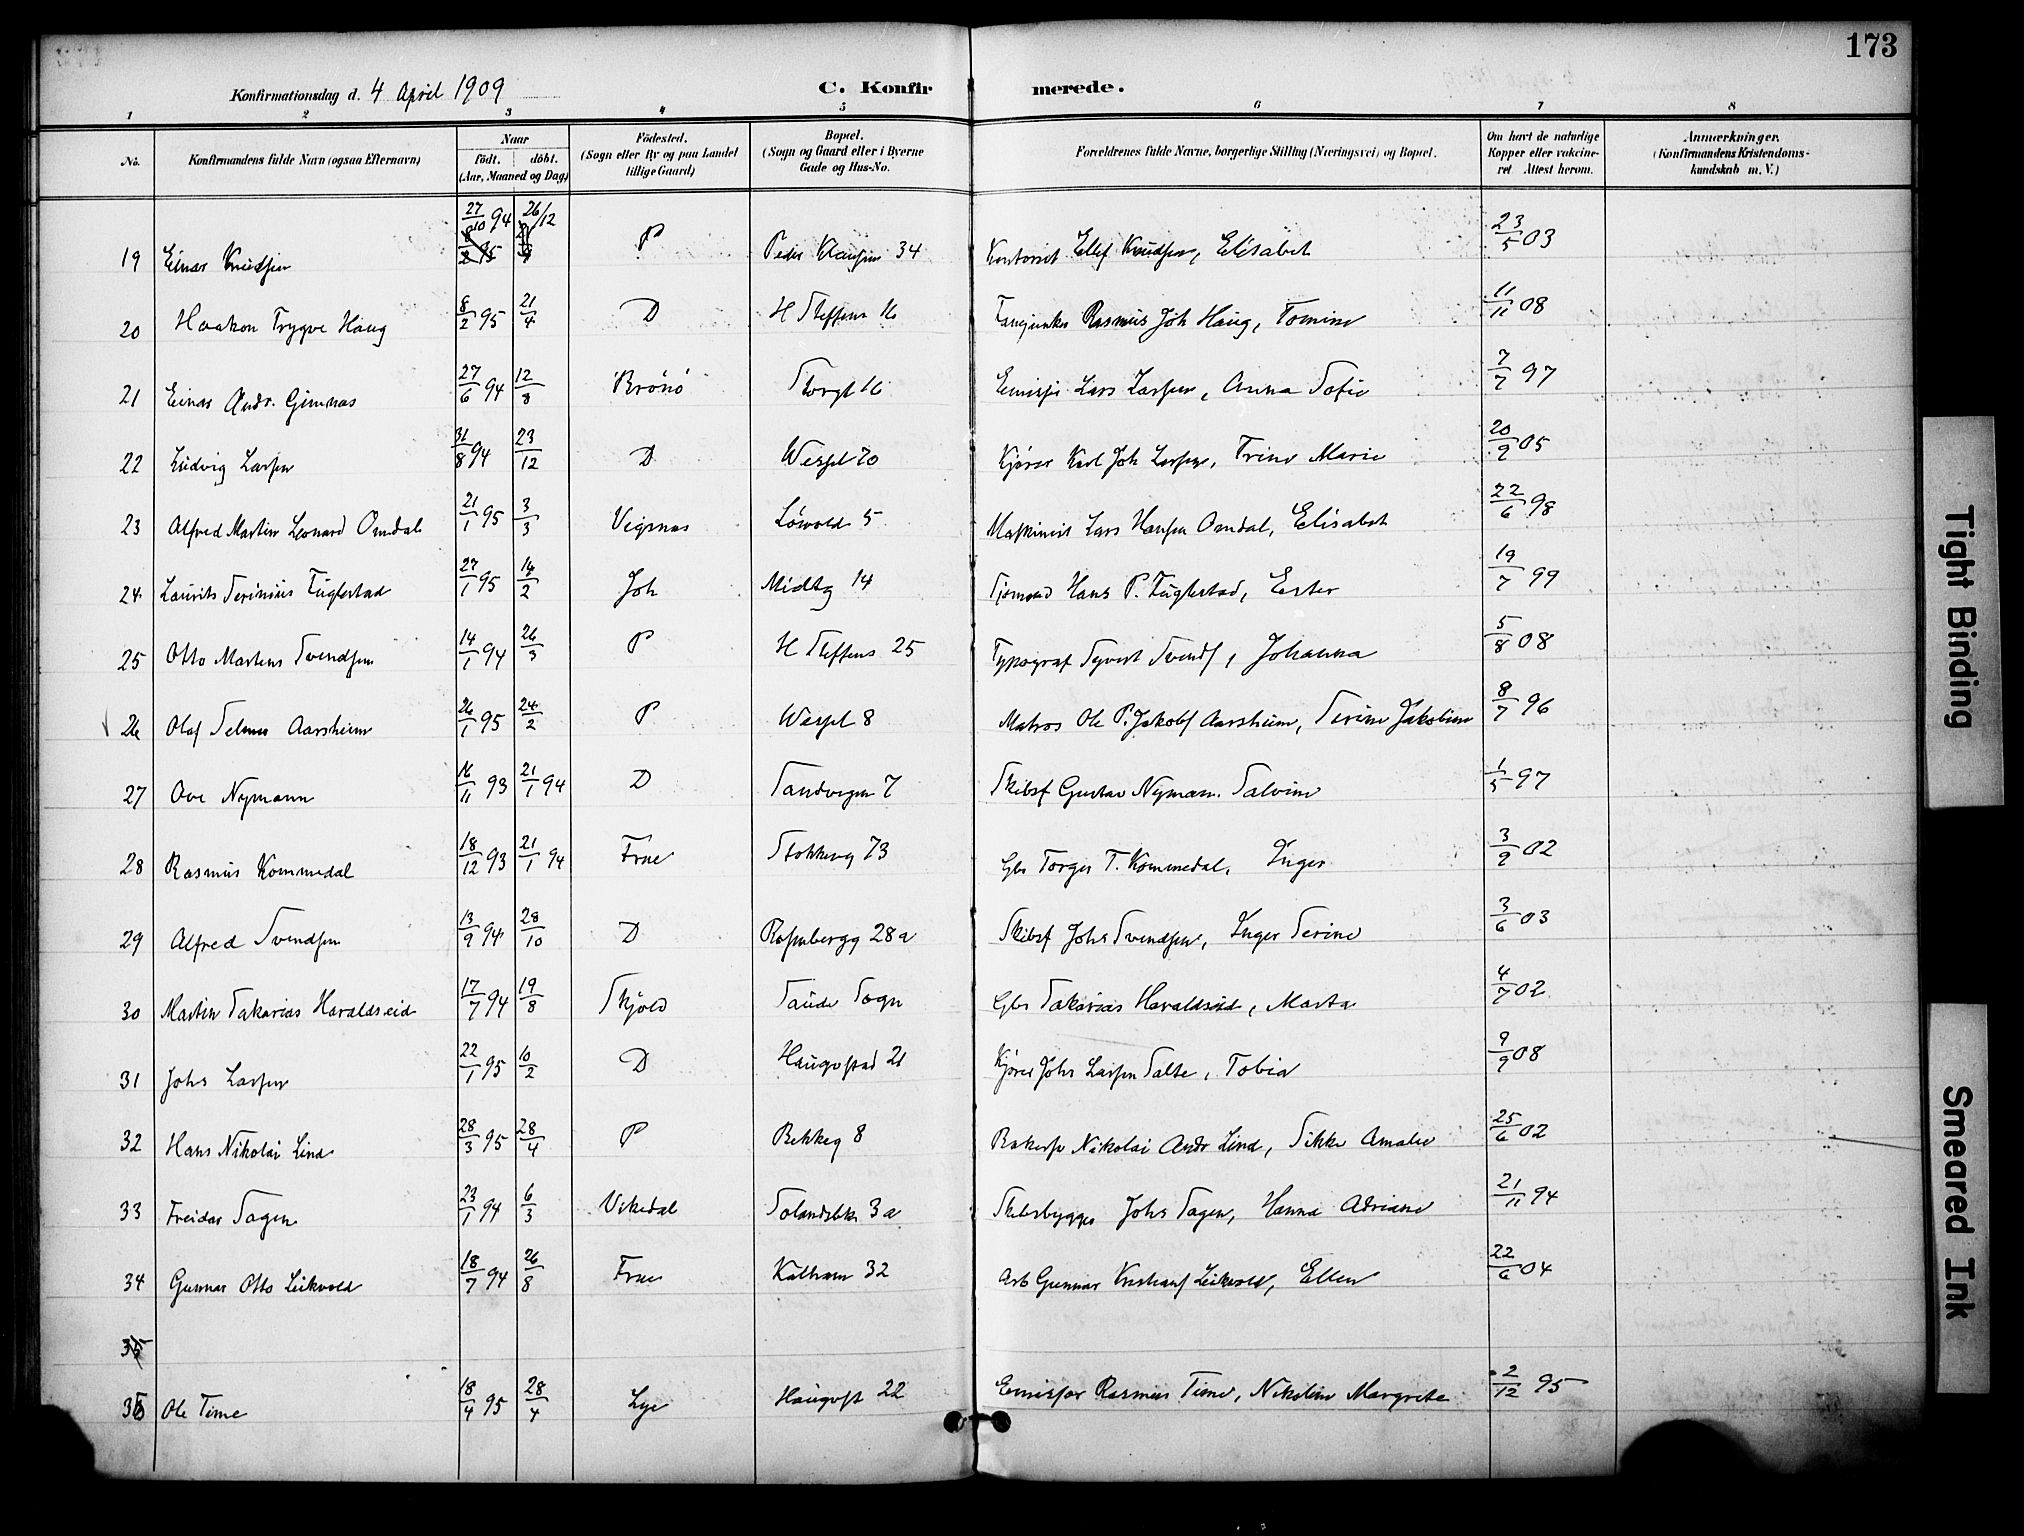 173
Konfirmationsdag d. 4 April 1909
C. Konfirmerede.
1 2 3 4 5 6 7 8
No. | Konfirmandens fulde Navn (ogsaa Efternavn) | Naar født. døbt. (Aar, Maaned og Dag) | Fødested. (Sogn eller By og paa Landet tillige Gaard) | Bopæl. (Sogn og Gaard eller i Byerne Gade og Hus-No. | Forældrenes fulde Navne, borgerlige Stilling (Næringsvei) og Bopæl. | Om havt de naturlige Kopper eller vakcineret Attest herom. | Anmærkninger. (Konfirmandens Kristendomskundskab m. V.)
19 Einar Knudsen 27/10 94 26/12 P Peder Klausøn 34 Kontorist Ellef Knudsen, Elisabet 23/5 03
20 Haakon Trygve Haug 8/2 95 21/4 D H Steffens 16 Rasmus Joh Haug, Tomine 11/11 08
21 Einar Andr. Gimnæs 27/6 94 12/8 Brønø Storgt 16 Emissær Lars Larsen, Anna Sofie 7/7 97
22 Ludvig Larsen 31/8 94 23/12 D Wesselt 70 Kjører Karl Joh Larsen, Trine Marie 20/9 05
23 Alfred Martin Leonard Omdal 21/1 95 3/3 Vigsnæs Løvold 5 Maskinist Lars Hansen Omdal, Elisabet 22/6 98
24 Laurits Serinius Fuglestad 27/1 95 14/2 Joh Midtbg 14 Sjømand Hans P. Fuglestad, Ester 19/7 99
25 Otto Martens Svendsen 14/1 94 26/3 P H Steffens 25 Typograf Syvert Svends, Johanna 5/8 08
26 Olaf Selmer Aarsheim 26/1 95 24/2 P Wessel 8 Matros Ole P. Jakobs Aarsheim, Serine Jakobine 8/7 96
27 Ove Nymann 16/11 93 21/1 94 D Sandvigen 7 Skibsf Gustav Nyman. Salvine 1/5 97
28 Rasmus Kommedal 18/12 93 21/1 94 Frue Stokkavg 73 Gbr Torger T. Kommedal, Inger 3/9 02
29 Alfred Svendsen 13/9 94 28/10 D Rosenbergg 28a Skibsf Johs Svendsen, Inger Serine 3/6 03
30 Martin Sakarias Haraldseid 17/7 94 19/8 Skjold Saude Sogn Gbr Sakarias Haraldseid, Marta 4/7 02
31 Johs Larsen 22/1 95 10/2 D Haugvstad 21 Kjører Johs Larsen Salte, Tobia 9/9 08
32 Hans Nikolai Lind 28/3 95 28/4 P Bekkeg 8 Nikolai Andr Lind, Sikke Amalie 25/6 02
33 Freidar Sagen 23/1 94 6/3 Vikedal Solandsbk 3a Skibsbygger Johs Sagen, Hanna Adriane 21/11 94
34 Gunnar Otto Leikvold 18/7 94 26/8 Frue Kalham 32 Arb Gunnar Kristians Leikvold, Ellen 22/6 04
35
36 Ole Time 18/4 95 28/4 Lye Haugvst 22 Emissær Rasmus Time, Nikoline Margrete 2/12 95
Tight Binding
Smeared Ink